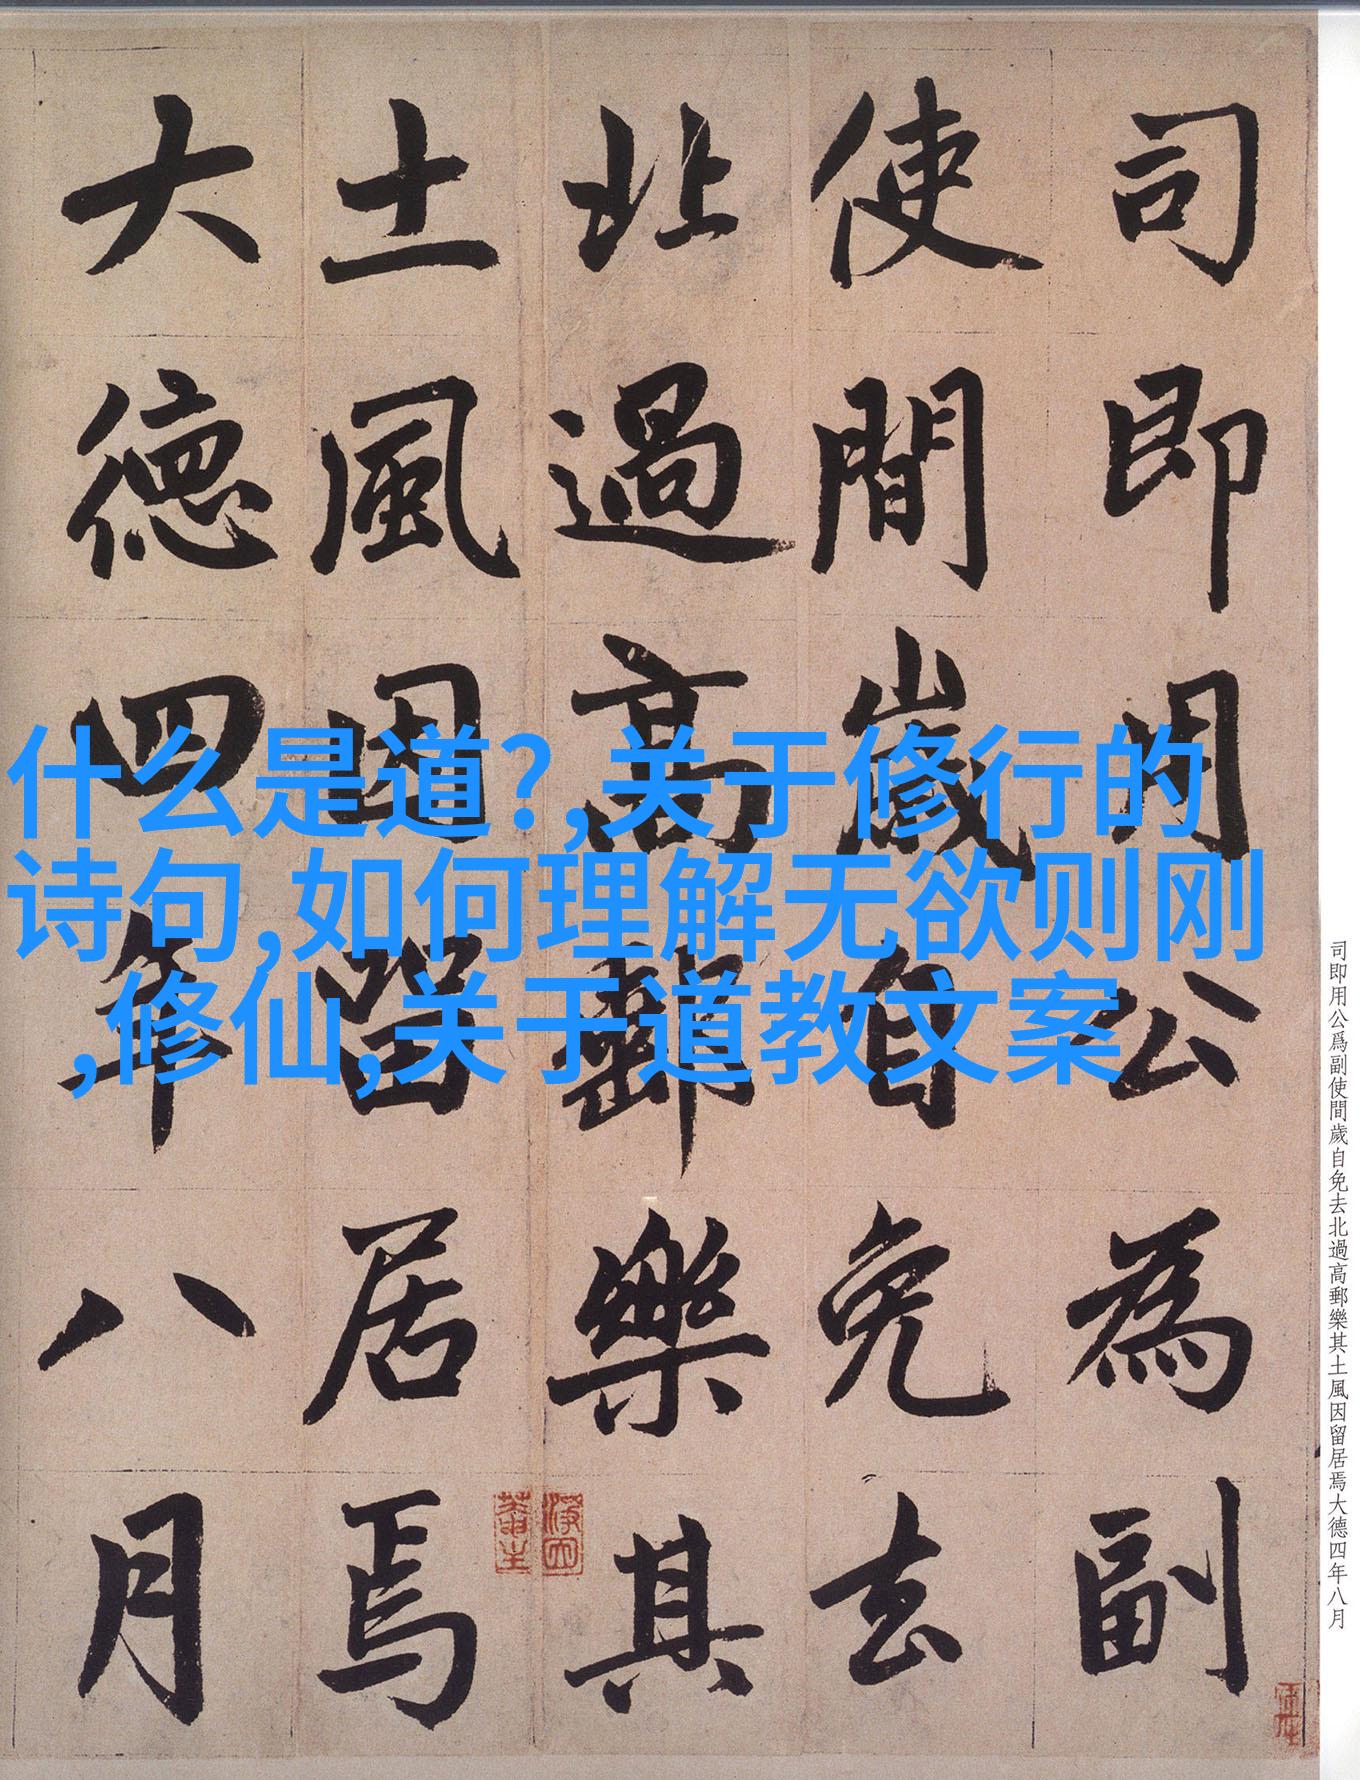 司即用公為副
使間歲自免去
北過高郵樂其
土風因留居焉
大德四年八月
什么是道?,关于修行的
诗句,如何理解无欲则刚
,修仙,关于道教文案
司即用公爲副使間歲自免去北過高郵樂其土風因留居焉大德四年八月